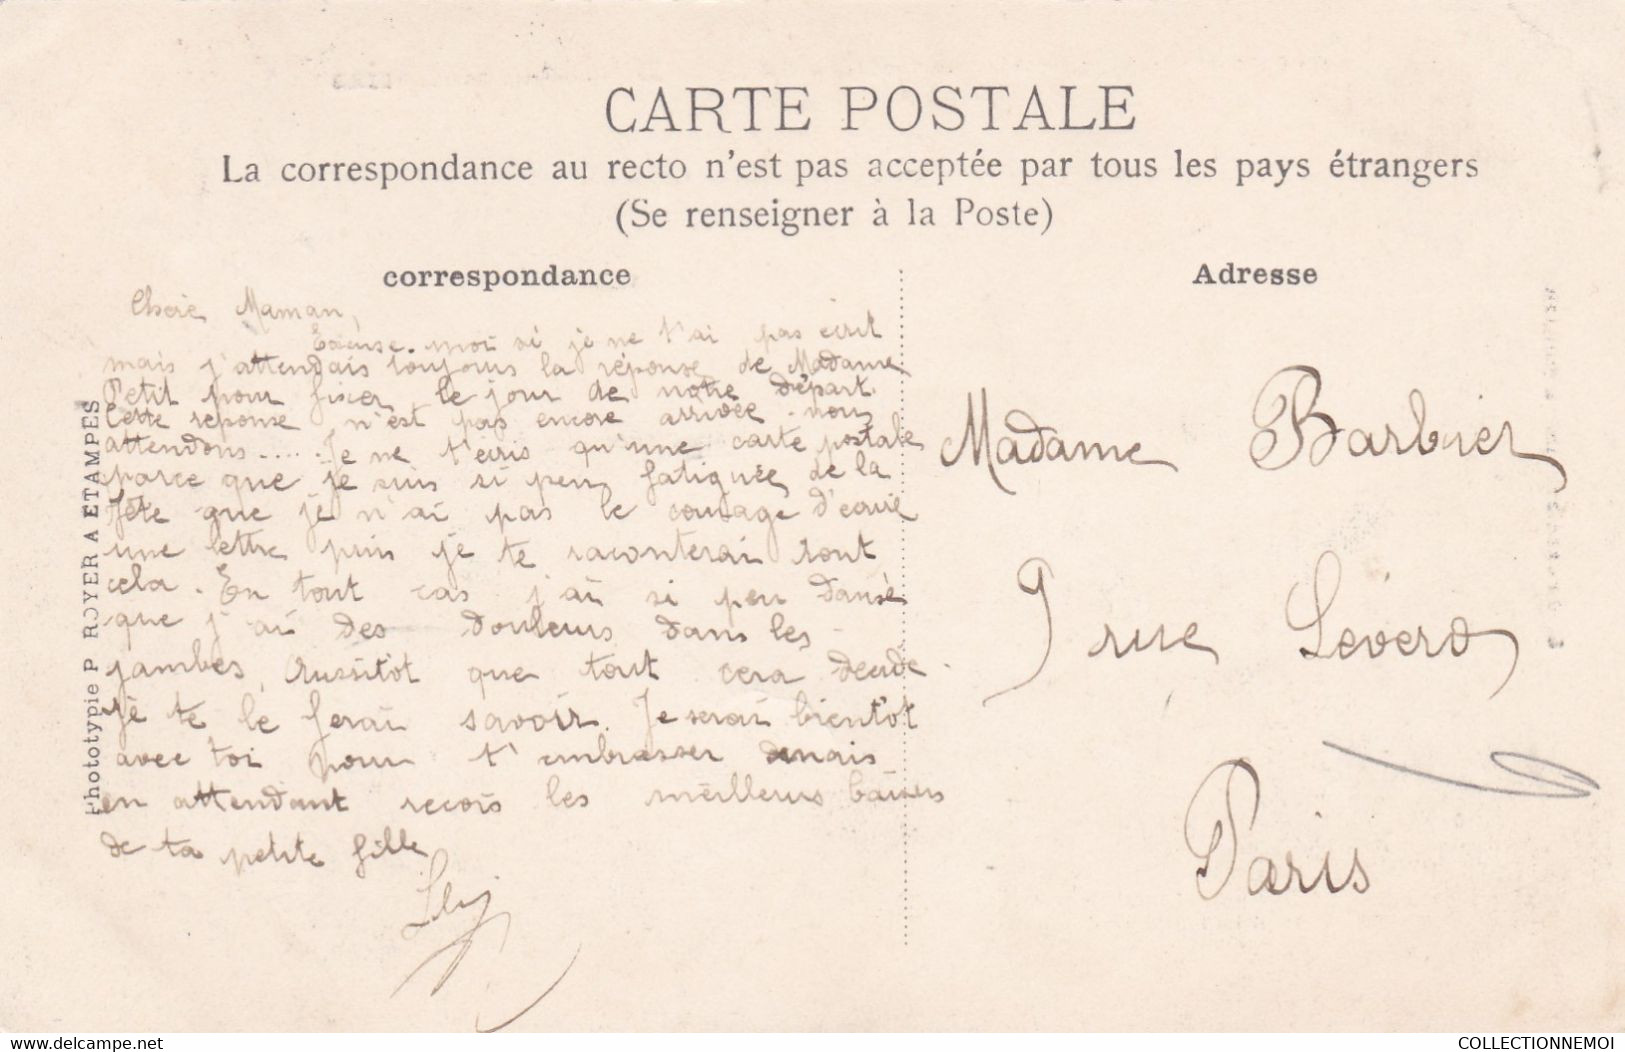 CARTE POSTALE
La correspondance au recto n'est pas acceptée par tous les pays étrangers
(Se renseigner à la Poste)
correspondance
Chère Maman,
Excuse-moi si je ne t'ai pas écrit
mais j'attendais toujours la réponse de Madame
Petit pour fixer le jour de notre départ.
Cette réponse n'est pas encore arrivée nous
attendons..... Je ne t'écris qu'une carte postale
parce que je suis si peu fatiguée de la
fête que je n'ai pas le courage d'écrire
une lettre puis je te raconterai tout
cela. En tout cas j'ai si peu dansé
que j'ai des douleurs dans les
jambes. Aussitôt que tout cera
je te le ferai savoir. Je serai bientôt
avec toi pour t'embrasser mais
en attendant recois les meilleurs baisers
de ta petite fille
Lily
Phototypie P ROYER A ETAMPES
Adresse
Madame Barbier
9 rue Lévero
Paris
www.delcampe.net
COLLECTIONNEMOI